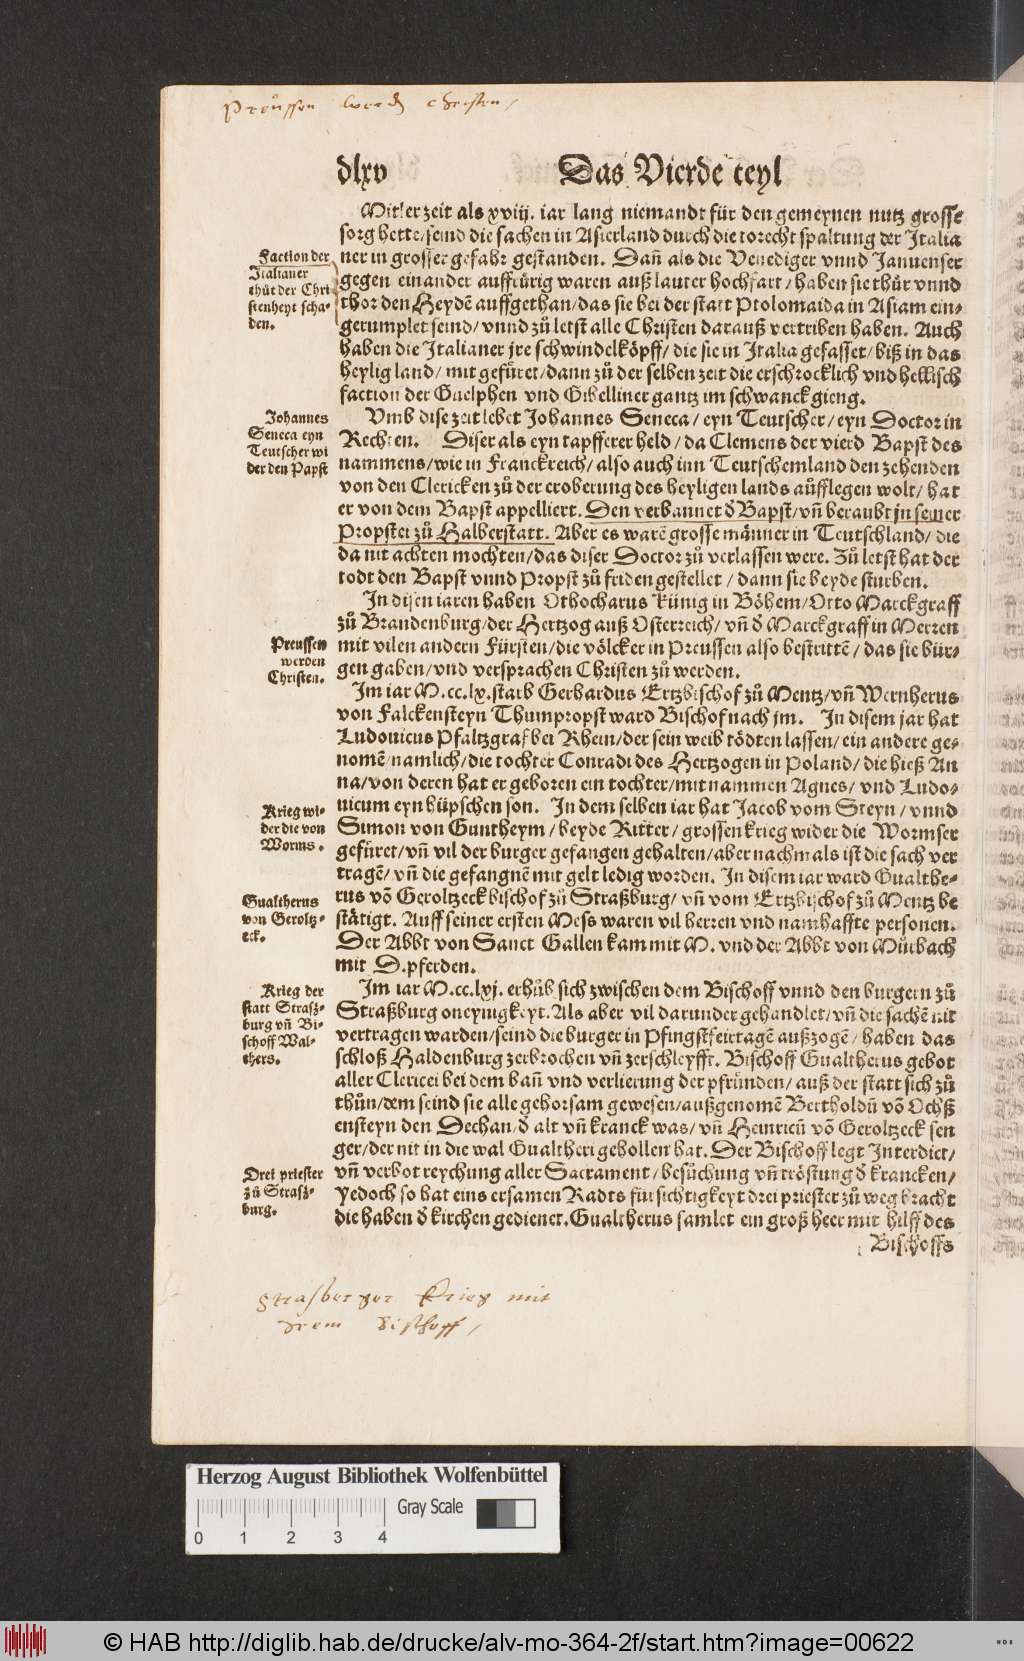 Preüssen werdē christen /
dlxv Das Vierde teyl
Mitler zeit als xviij. iar lang niemandt für den gemeynen nutz grosse
sorg hette/seind die sachen in Asierland durch die torecht spaltung der Italia
Faction der
Italianer
thůt der Chri
stenheyt scha-
den.
ner in grosser gefahr gestanden. Dañ als die Venediger vnnd Januenser
gegen einander auffrürig waren auß lauter hochfart/ haben sie thür vnnd
thor den Heydē auffgethan/das sie bei der statt Ptolomaida in Asiam ein-
gerumplet seind/vnnd zů letst alle Christen darauß vertriben haben. Auch
haben die Italianer jre schwindelköpff/die sie in Italia gefasset/biß in das
heylig land/ mit gefüret/dann zů der selben zeit die erschrocklich vnd hellisch
faction der Guelphen vnd Gibelliner gantz im schwanck gieng.
Johannes
Seneca eyn
Teutscher wi
der den Papst
Vmb dise zeit lebet Johannes Seneca/eyn Teutscher/eyn Doctor in
Rechten. Diser als eyn tapfferer held/da Clemens der vierd Bapst des
nammens/wie in Franckreich/also auch inn Teutschemland den zehenden
von den Clericken zů der eroberung des heyligen lands aůfflegen wolt/hat
er von dem Bapst appelliert. Den verbannet ð Bapst/vñ beraubt jn seiner
Propstei zů Halberstatt. Aber es warē grosse männer in Teutschland/die
da nit achten mochten/das diser Doctor zů verlassen were. Zů letst hat der
todt den Bapst vnnd Propst zů friden gestellet/dann sie beyde sturben.
In disen iaren haben Othocharus Künig in Böhem/Otto Marckgraff
zů Brandenburg/der Hertzog auß Osterreich/vñ ð Marckgraff in Mexxen
Preussen
werden
Christen.
mit vilen andern Fürsten/die völcker in Preussen also bestrittē/das sie bür-
gen gaben/vnd versprachen Christen zů werden.
Im iar M.cc.lx.starb Gerhardus Ertzbischof zů Mentz/vñ Wernherus
von Falckensteyn Thumpropst ward Bischof nach jm. In disem jar hat
Ludouicus Pfaltzgraf bei Rhein/der sein weib tödten lassen/ein andere ge-
nomē namlich/die tochter Conradi des Hertzogen in Poland/die hieß An
na/von deren hat er geboren ein tochter/mit nammen Agnes/vnd Ludo-
Krieg wi-
der die von
Worms.
uicum eyn hüpschen son. In dem selben iar hat Jacob vom Steyn/vnnd
Simon von Guntheym/beyde Ritter/grossen krieg wider die Wormser
gefüret/vñ vil der burger gefangen gehalten/aber nachmals ist die sach ver
tragē/vñ die gefangnē mit gelt ledig worden. In disem iar ward Gualthe-
Gualtherus
von Geroltz-
eck.
rus võ Geroltzeck bischof zů Straßburg/vñ vom Ertzbischof zů Mentz be
stätigt. Auff seiner ersten Mess waren vil herren vnd namhaffte personen.
Der Abbt von Sanct Gallen kam mit M. vnd der Abbt von Můrbach
mit D.pferden.
Krieg der
statt Straß-
burg vñ Bi-
schoff Wal-
thers.
Im iar M.cc.lxj. erhůb sich zwischen dem Bischoff vnnd den burgern zů
Straßburg oneynigkeyt. Als aber vil darunder gehandlet/vñ die sachē nit
vertragen warden/seind die burger in Pfingstfeirtagē außzogē/haben das
schloß Haldenburg zerbrochen vñ zerschleyfft. Bischoff Gualtherus gebot
aller Clericei bei dem bañ vnd verlierung der pfründen/auß der statt sich zů
thůn/dem seind sie alle gehorsam gewesen/außgenomē Bertholdū võ Ochß
ensteyn den Dechan/ð alt vñ kranck was/vñ Heinricū võ Geroltzeck sen
ger/der nit in die wal Gualtheri gehollen hat. Der Bischoff legt Interdict/
Drei priester
zů Straß-
burg.
vñ verbot reychung aller Sacrament/besůchung vñ tröstung ð krancken/
Yedoch so hat eins ersamen Radts fürsichtigkeyt drei priester zů weg bracht
die haben ð kirchen gedienet. Gualtherus samlet ein groß heer mit hilff des
Bischoffs
Strasberger Krieg mit
dem Bischoff /
Herzog August Bibliothek Wolfenbüttel
Gray Scale
0 1 2 3 4
© HAB http://diglib.hab.de/drucke/alv-mo-364-2f/start.htm?image=00622